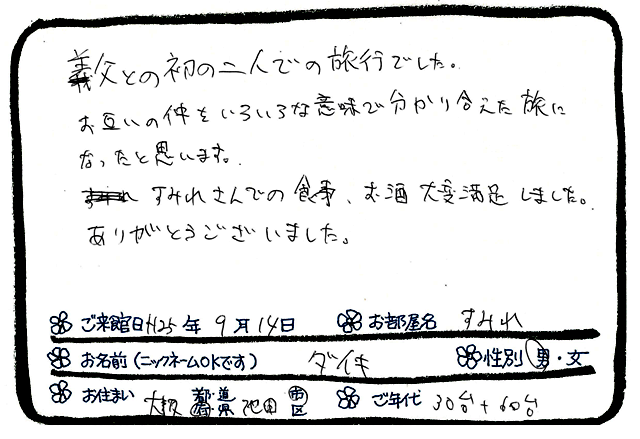 義父との初の二人での旅行でした。
お互いの仲をいろいろな意味で分かり合えた旅に
なったと思います。
すみれさんでの食事、お酒大変満足しました。
ありがとうございました。
ご来館日 H25年 9月14日 お部屋名 すみれ
お名前(ニックネームOKです) ダイキ 性別 男・女
お住まい 大阪 都・道・府・県 池田 市・区 ご年代 30台+60台